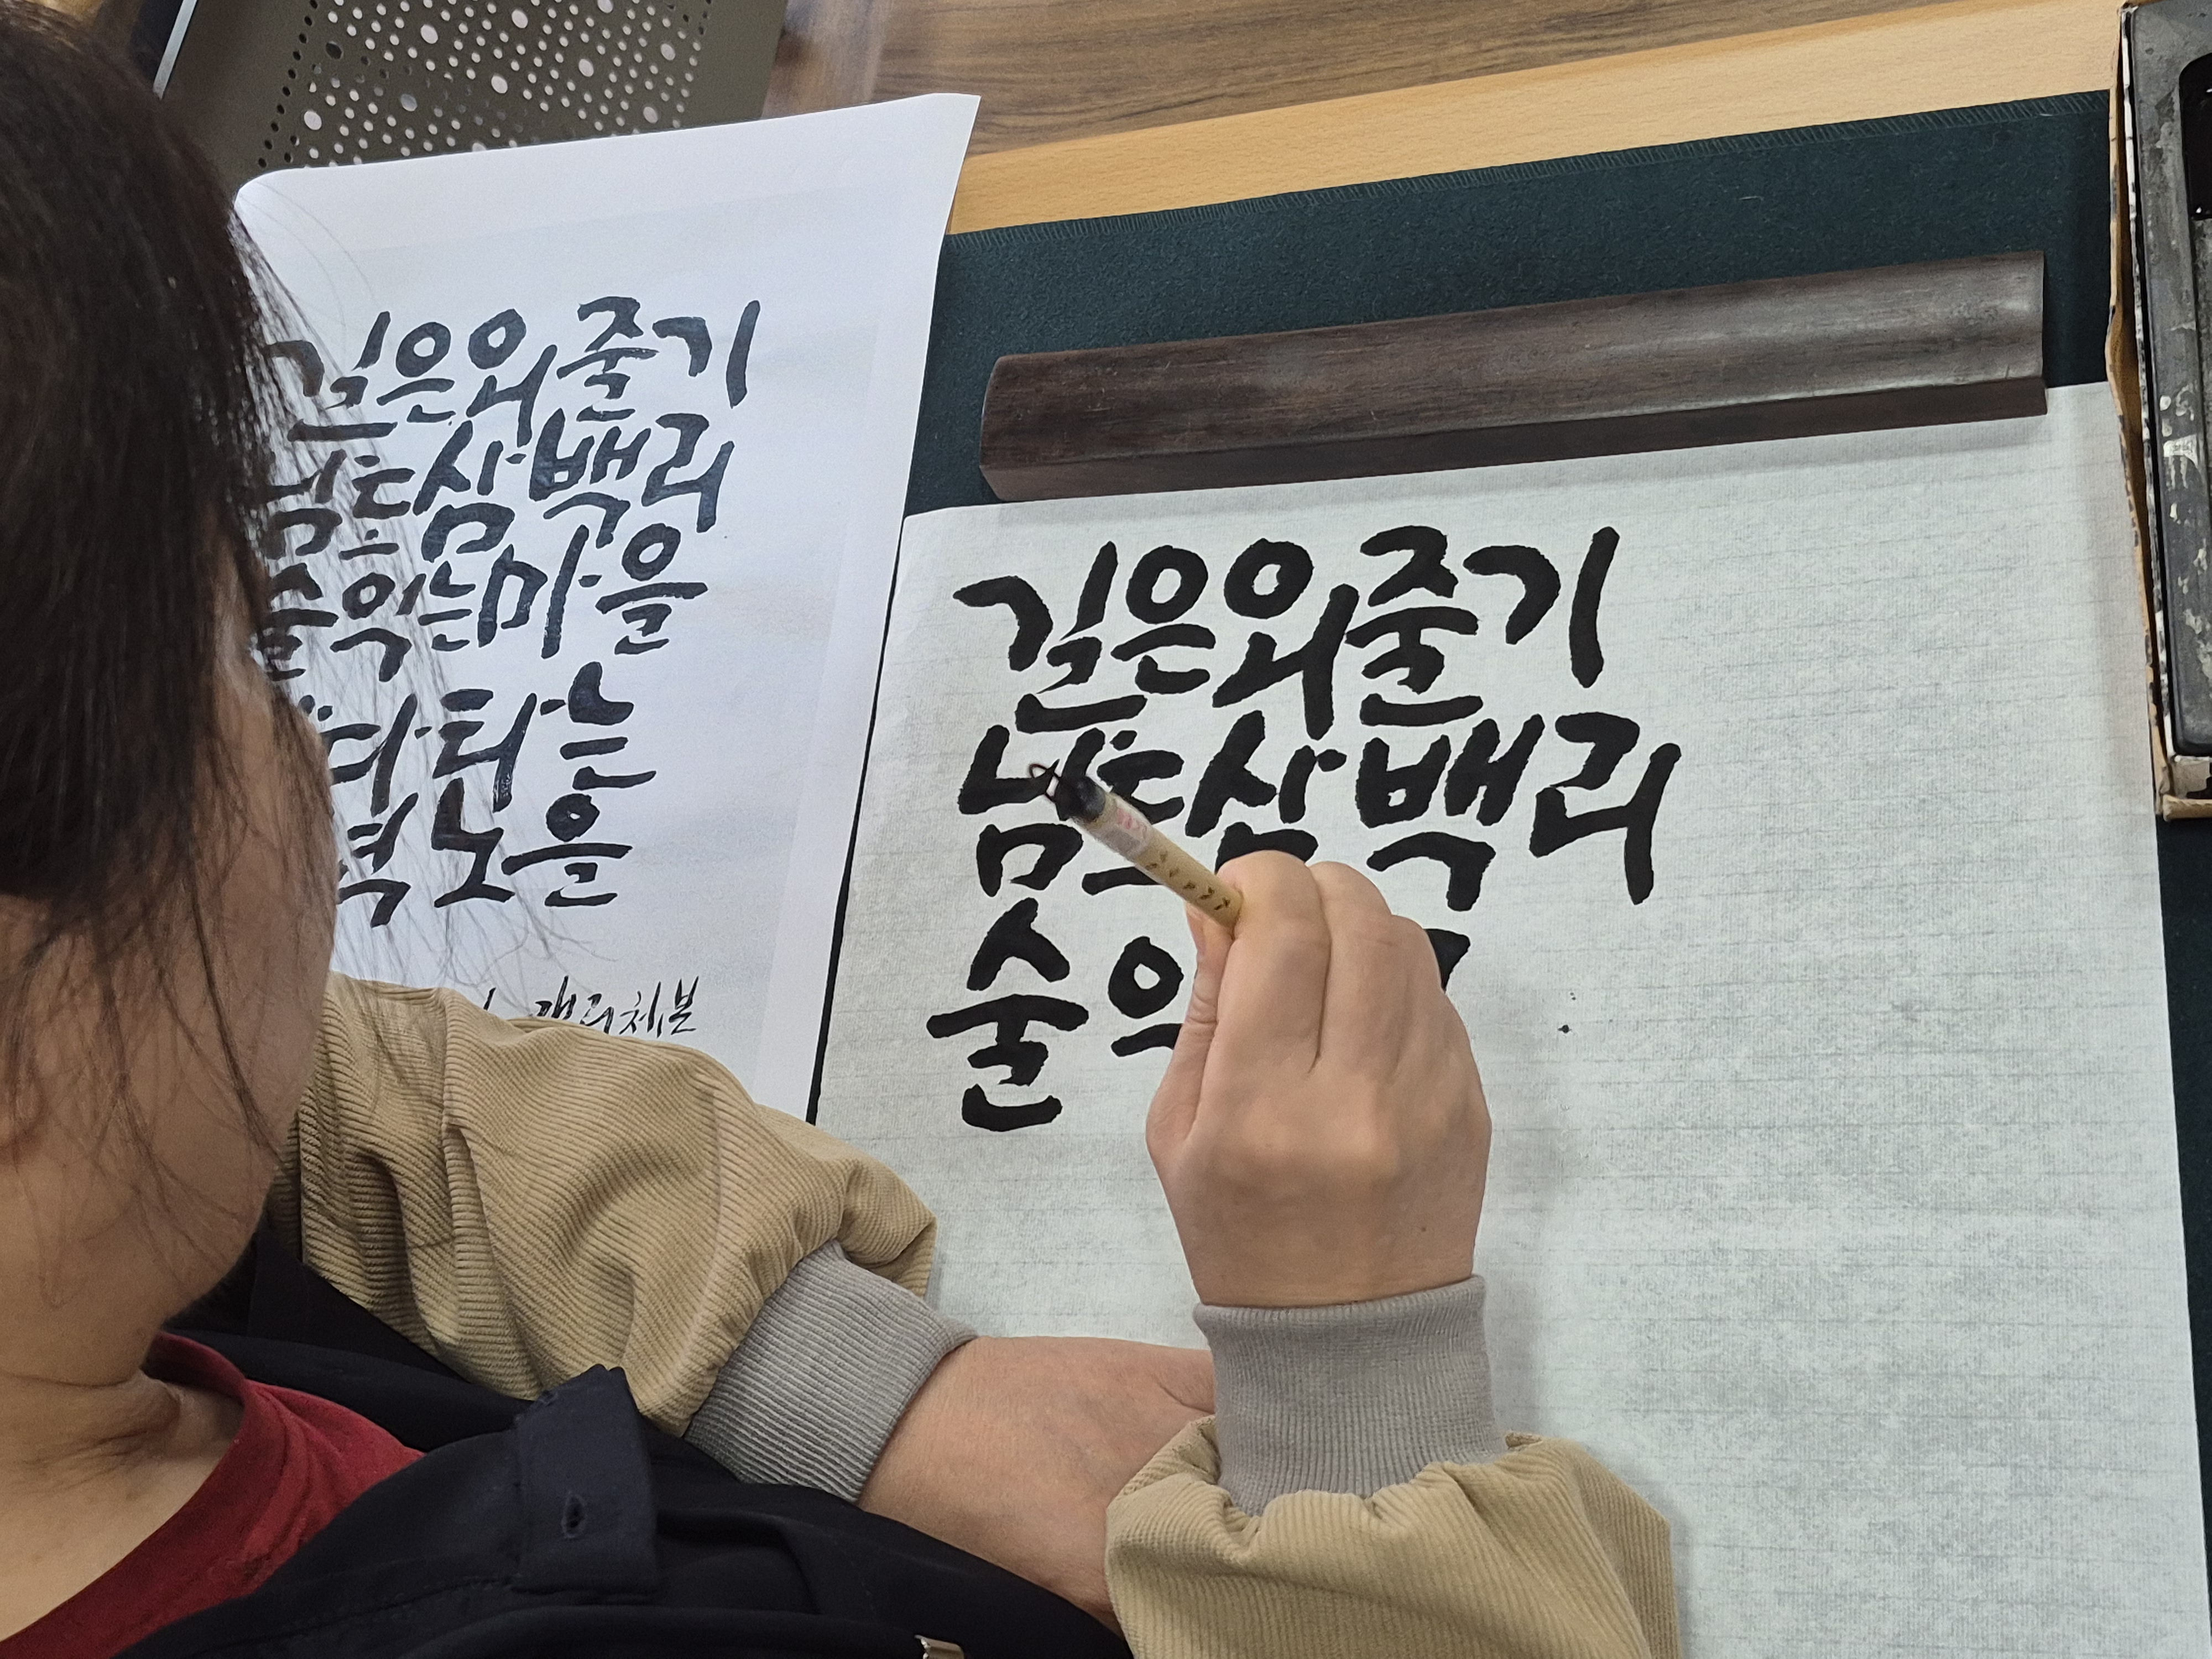 길은외줄기
남도삼백리
술익는마을
다타는
녁노을
캘리체본
길은외줄기
남도삼백리
술익